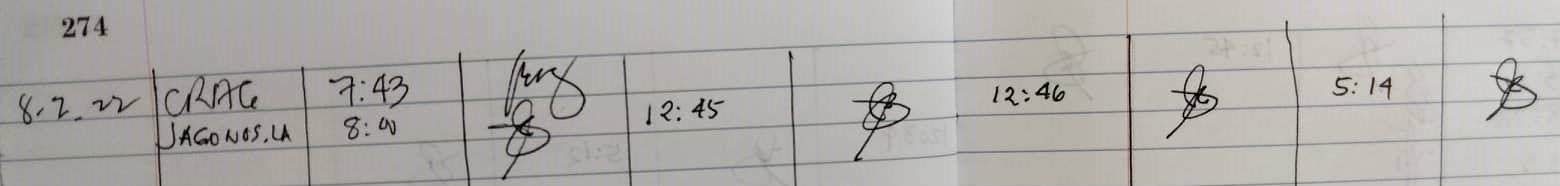 274
8.2.22 CRAG 7:43
JAGONOS, LA 8:00 12:45 12:46 5:14